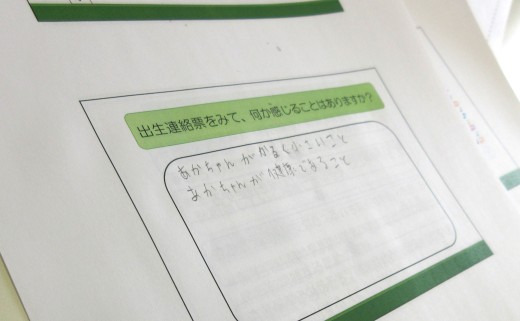 出生連絡票をみて、何か感じることはありますか?
あかちゃんがかるく小さいこと
あかちゃんが健康であること